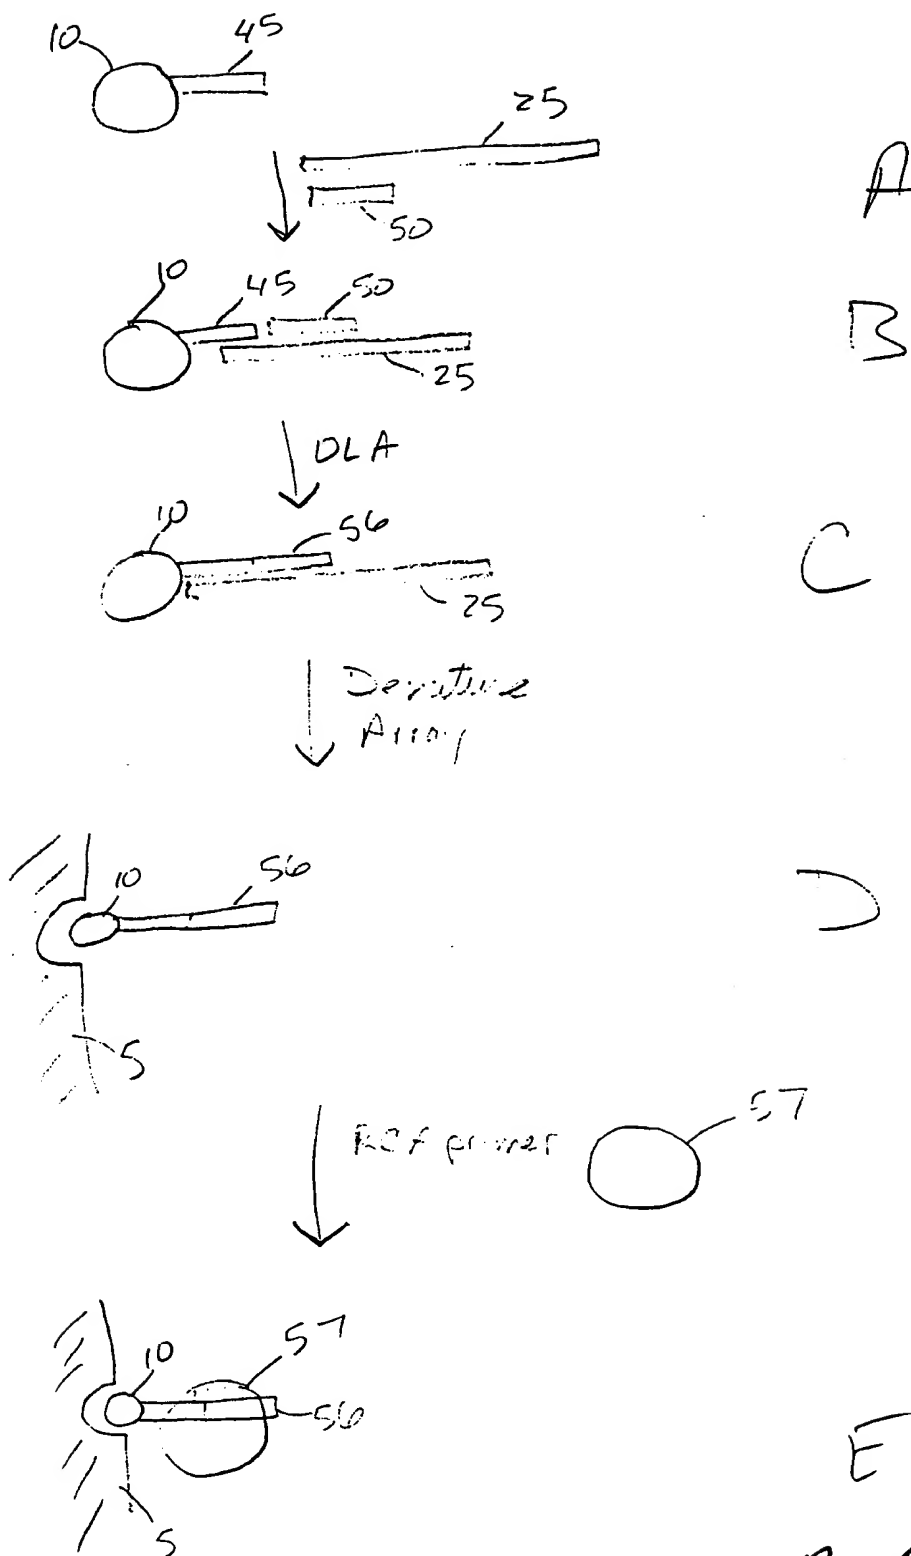 10 45
25
A
50
10 45 50
B
25
OLA
10 56
C
25
Denature
Array
10 56
D
5
RCA primer
57
57
10
56
E
5